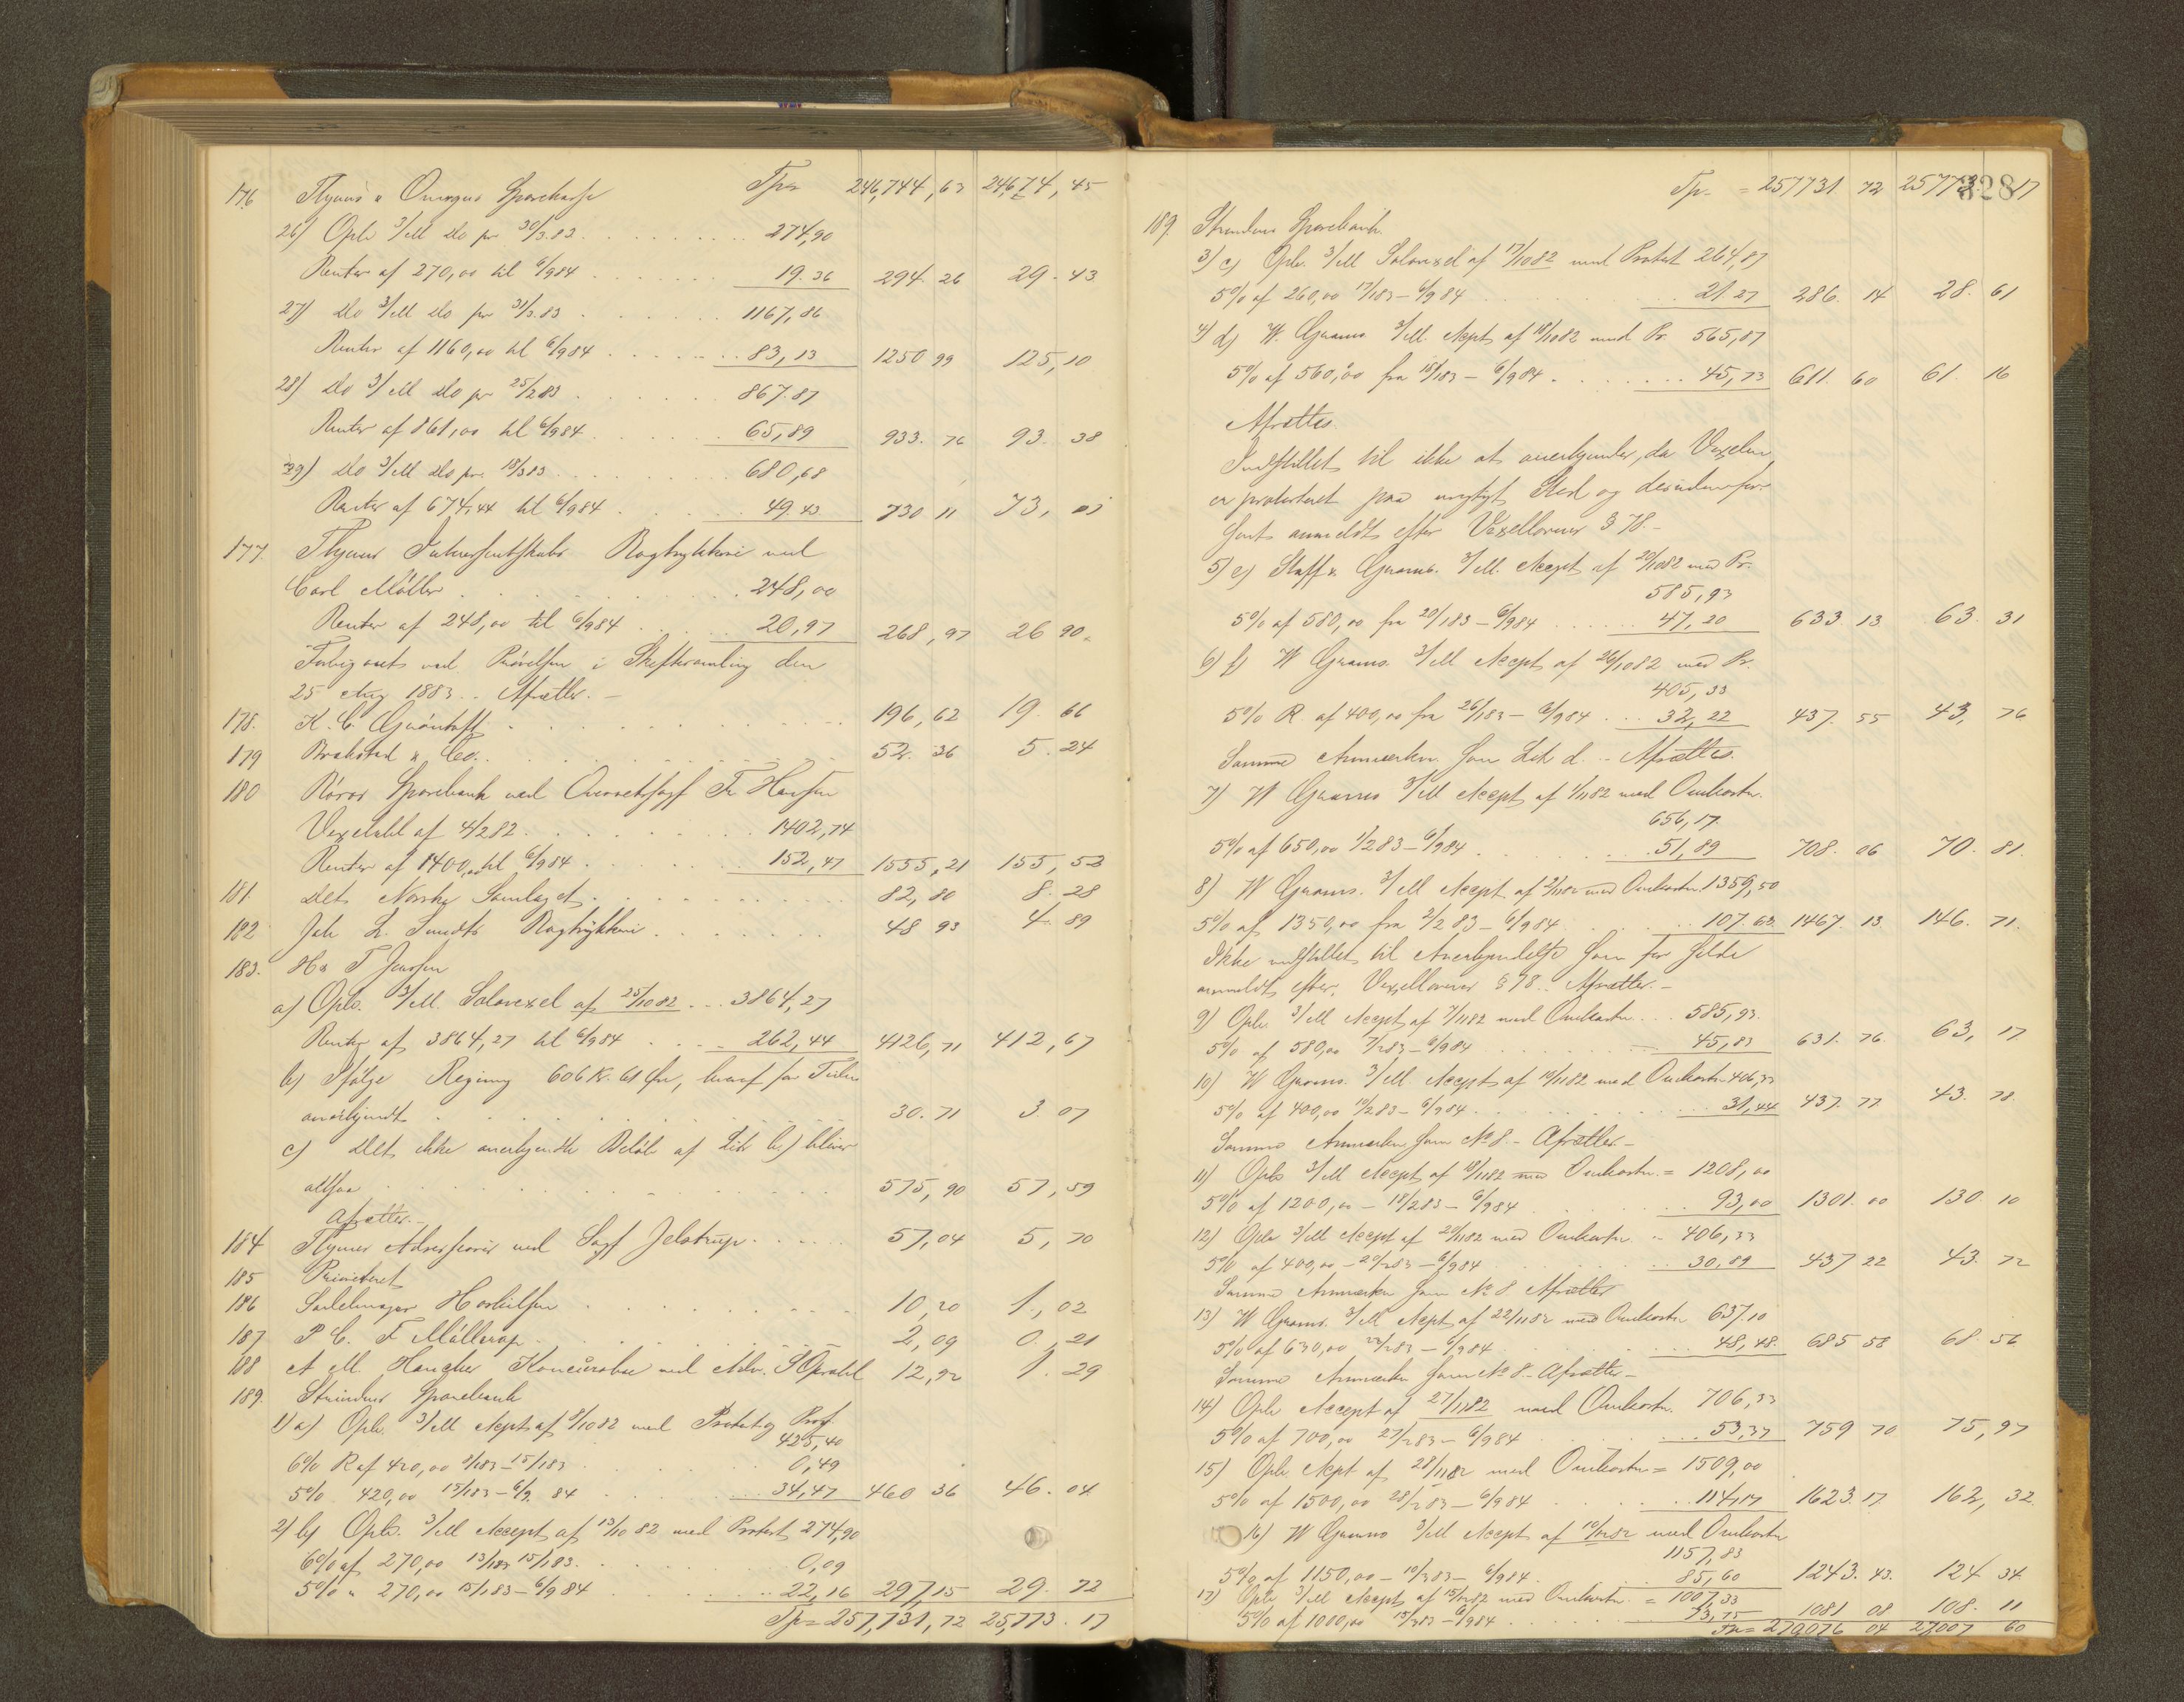 176. Thynæs & Omegns Sparekasse Tpr 246,744,63 24674,45
26) Opb 3/M do pr 30/3.83 274,90
Renter af 270,00 til 6/984 19.36 294.26 29.43
27) do 3/M do pr 31/3.83 1167,86
Renter af 1160,00 til 6/984 83,13 1250 99 125,10
28) do 3/M do pr 25/283 867.87
Renter af 861,00 til 6/984 65,89 933.76 93.38
29) do 3/M do pr. 18/383 680,68
Renter af 674,44 til 6/984 49.43 730 11 73,
177. Bogtrykkeri ved
Carl Møller 248,00
Renter af 248,00 til 6/984 20,97 268,97 26 90
ved Prøvelsen i Skiftesamling den
25 Aug 1883. Afsættes.
178. K. C. 196,62 19.66
179 Brakstad & Co. 52.36 5.24
180 Røros Sparebank ved Overretssagf Fr Hansen
Vexelobl af 4/282 1402,74
Renter af 1400,00 til 6/984 152,47 1555,21 155,53
181. Det Norske Samlaget 82,80 8.28
182 Joh L. Sundts Bogtrykkeri 48 93 4.89
183. H & T Jenssen
a) Opb. 3/M. Solavexel af 25/1082 3864,27
Renter af 3864,27 til 6/984 262,44 4126,71 412,67
b) Ifølge Regning 606 Kr. 61 Øre, hvoraf
anerkjendt 30.71 3.07
c) Det ikke anerkjendte Beløb af Litr b) bliver
altsaa 575,90 57,59
Afsættes.
184 ved Sagf Jelstrup 57,04 5,70
185 Prioriteret
186 Sadelmager 10,20 1,02
187 P C. F Møllerop 2,09 0,21
188 A M. Hanches Konkursbo ved Adv. 12,92 1.29
189. Strindens Sparebank
1) a) Opb. 3/M Acept af 8/1082 med Protest og Prov.
425,40
6% R af 420,00 8/183 – 15/183 0,49
5% 420,00 15/183 – 6/9 84 34,47 460 36 46.04
2) b) Opb. 3/M Accept af 13/10 82 med Protest 274,90
6% af 270,00 13/183 15/183 0,09
5% " 270,00 15/183 – 6/984 22,16 297,15 29.72
Tpr = 257,731,72 25,773.17
Tpr = 257731.72 25773.17
328
189. Strindens Sparebank
3) c) Opb. 3/M Solavexel af 17/1082 med Protest 264,87
5% af 260,00 17/183 – 6/984 21.27 286.14 28.61
4) d) W. Grams 3/M. Acept af 18/1082 med Pr. 565,87
5% af 560,00 fra 18/183 – 6/984 45,73 611.60 61.16
Afsættes.
Indstillet til ikke at anerkjendes, da Vexelen
er protesteret paa urigtigt Sted og desuden for
sent anmeldt efter Vexellovens § 78.
5) e) Staff & Grams. 3/M. Accept af 20/1082 med Pr.
585,93
5% af 580,00 fra 20/183 – 6/984 47,20 633.13 63.31
6) f) W Grams 3/M Accept af 26/1082 med Pr.
405,33
5% R. af 400,00 fra 26/183 – 6/984 32,22 437.55 43,76
Samme Anmærkn. som Litr d. Afsættes.
7) W Grams 3/M Accept af 1/1182 med Omkostn.
656,17
5% af 650,00 1/283 – 6/984 51,89 708.06 70.81
8) W Grams. 3/M Accept af 2/1182 med Omkostn. 1359,50
5% af 1350,00 fra 2/283 – 6/984 107.63 1467.13 146.71
Ikke indstillet til Anerkjendelse som for silde
anmeldt efter Vexellovens § 78. Afsættes.
9) Opb 3/M Accept af 7/1182 med Omkostn 585,93
5% af 580,00 7/283 – 6/984 45,83 631.76 63,17
10) W Grams. 3/M. Accept af 10/1182 med Omkostn 406,33
5% af 400,00 10/283 – 6/984 31,44 437.77 43.78
Samme Anmærkn som No 8. Afsættes
11) Opb 3/M Accept af 18/1182 med Omkostn. = 1208,00
5% af 1200,00 – 18/283 – 6/984 93,00 1301.00 130.10
12) Opb 3/M Accept af 20/1182 med Omkostn 406,33
5% af 400,00 – 20/283 – 6/984 30.89 437 22 43.72
Samme Anmærkn som No 8 Afsættes
13) W Grams. 3/M Acept af 22/1182 med Omkostn 637.10
5% af 630,00 22/283 – 6/984 48,48 685 58 68.56
Samme Anmærkn som No 8. Afsættes
14) Opb Accept af 27/1182 med Omkostn. 706,33
5% af 700,00 27/283 – 6/984 53,37 759 70 75,97
15) Opb Acept af 28/1182 med Omkostn = 1509,00
5% af 1500,00 28/283 – 6/984 114,17 1623.17 162,32
16) W Grams 3/M Accept af 10/1282 med Omkostn
1157,83
5% af 1150,00 – 10/383 – 6/984 85,60 1243.43 124 34
17) Opb 3/M Accept af 15/1282 med Omkostn = 1007,33
5% af 1000,00 15/383 – 6/984 73,75 1081 08 108.11
Tpr = 270076 04 27007 60